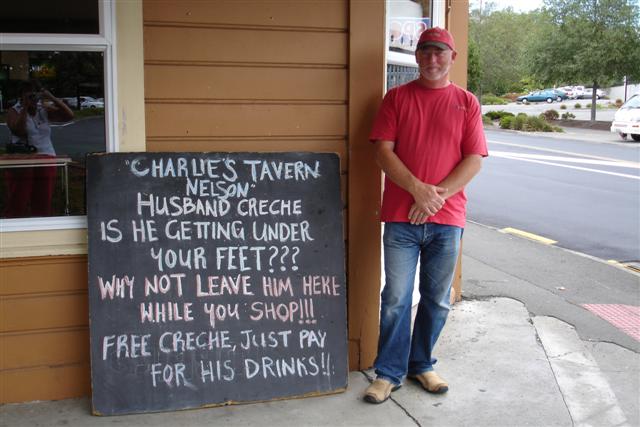 "CHARLIE'S TAVERN
NELSON"
HUSBAND CRECHE
IS HE GETTING UNDER
YOUR FEET???
WHY NOT LEAVE HIM HERE
WHILE YOU SHOP!!!
FREE CRECHE, JUST PAY
FOR HIS DRINKS!!